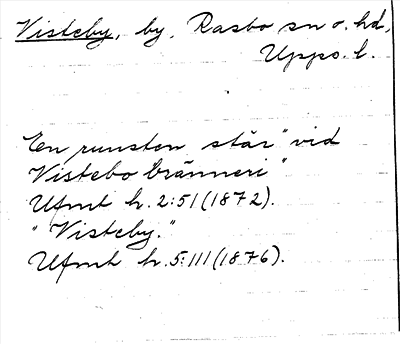 Visteby, by, Rasbo sn o. hd,
Upps. l.
En runsten står "vid
Vistebo bränneri"
Ufmt h. 2:51 (1872).
"Visteby."
Ufmt h. 5:111 (1876).